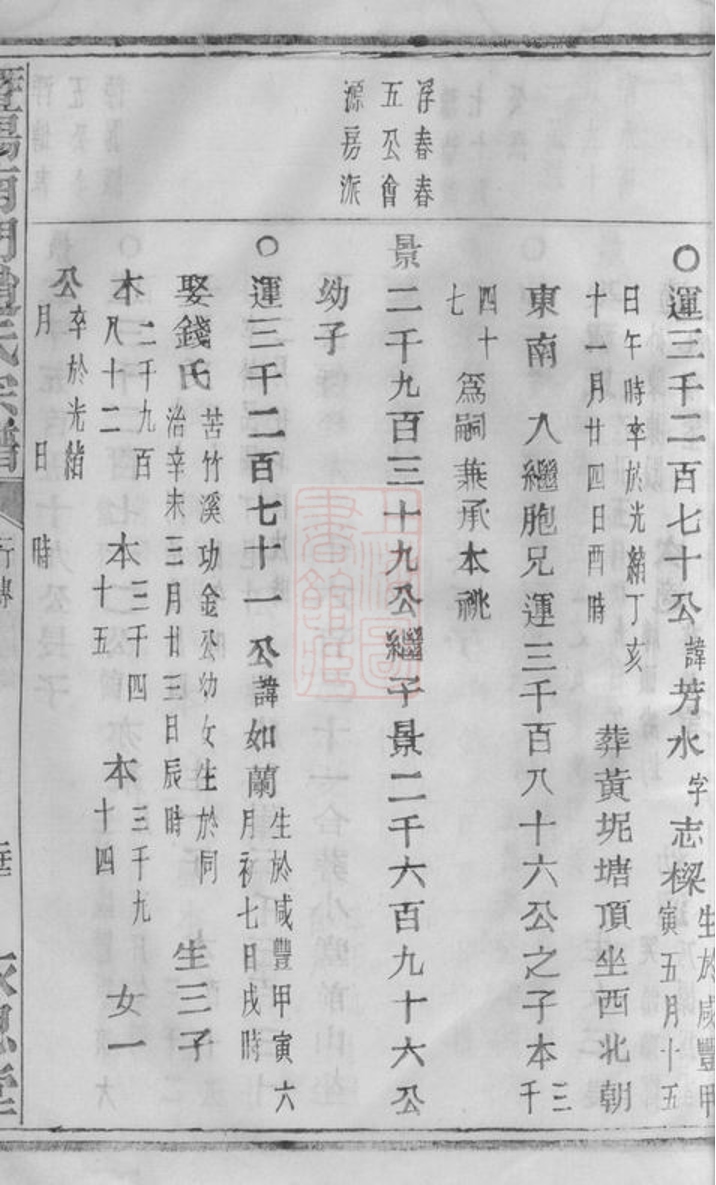 浮春春
五公會
源房派
○運三千二百七十公諱芳水字志樑生於咸豐甲寅五月十五
日午時卒於光緒丁亥十一月廿四日酉時葬黃坭塘頂坐西北朝
東南入繼胞兄運三千百八十六公之子本三千
四十七為嗣兼承本祧
景二千九百三十九公繼子景二千六百九十六公
幼子
○運三千二百七十一公諱如蘭生於咸豐甲寅六月初七日戌時
娶錢氏苦竹溪功金公幼女生於同治辛未三月廿三日辰時生三子
本二千九百八十二本三千四十五本三千九十四女一
公卒於光緒
月日時
暨陽南門趙氏宗譜
行傳